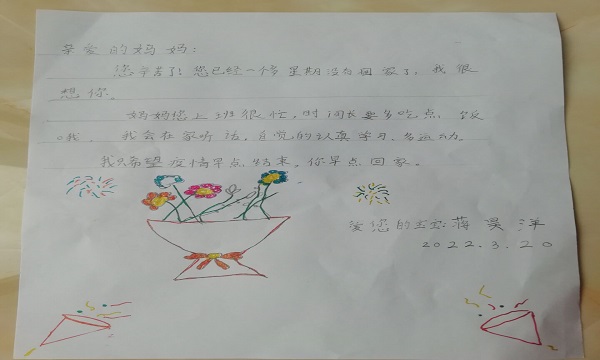 亲爱的妈妈:
您辛苦了!您已经一个多星期没有回家了,我很
想你。
妈妈您上班很忙,时间长要多吃点饭
哦,我会在家听话,自觉的认真学习、多运动。
我只希望疫情早点结束,你早点回家。
爱您的宝宝:蒋昊泽
2022.3.20